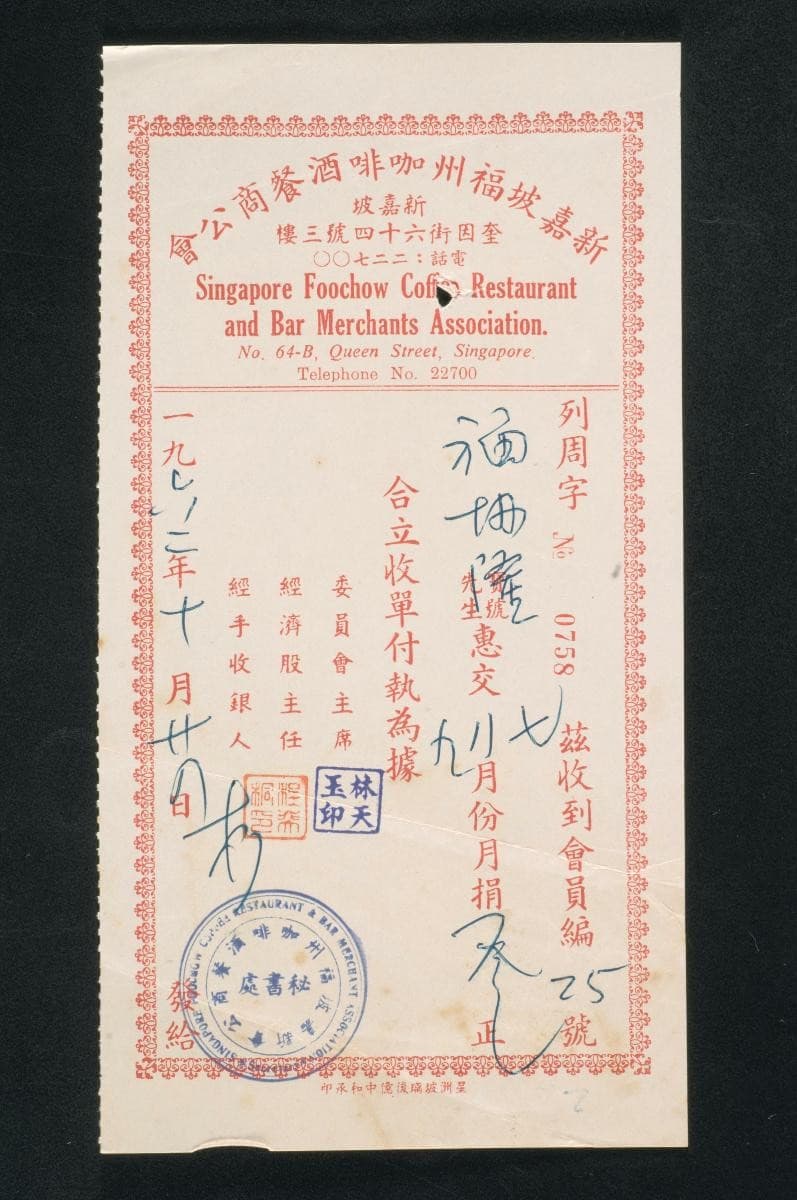 新嘉坡福州咖啡酒餐商公會
新嘉坡
奎因街六十四號三樓
電話：二二七〇〇
Singapore Foochow Coffee Restaurant
and Bar Merchants Association.
No. 64-B, Queen Street, Singapore.
Telephone No. 22700
列周字 № 0758 茲收到會員編 25 號
福 隆 寶號 先生 惠交 七 八 九 月份月捐 正
合立收單付執為據
委員會主席
林天玉印
經濟股主任
經手收銀人
一九 二年十月廿八日 發給
福州咖啡酒餐商公會
秘書處
SINGAPORE FOOCHOW COFFEE RESTAURANT & BAR MERCHANT ASSOCIATION